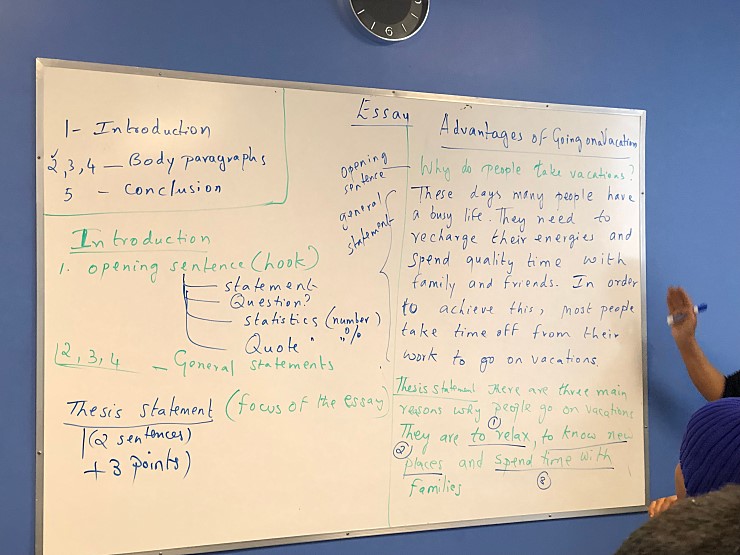 Essay
1- Introduction
2,3,4 – Body paragraphs
5 - Conclusion
Introduction
1. opening sentence (hook)
statement
Question?
statistics (number)
"%
Quote "   "
2,3,4 – General statements
Thesis statement (focus of the essay)
(2 sentences)
+ 3 points)
Advantages of Going on a Vacation
opening
sentence
Why do people take vacations?
general
statement
These days many people have
a busy life. They need to
recharge their energies and
spend quality time with
family and friends. In order
to achieve this, most people
take time off from their
work to go on vacations.
Thesis statement There are three main
reasons why people go on vacations
They are to relax, to know new
places and spend time with
families
1
2
3
6